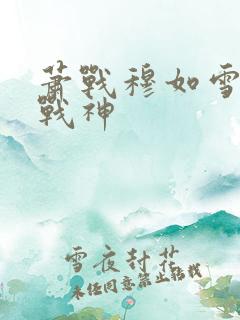 萧戰穆如雪
戰神
雪夜封花
未经同意禁止转载